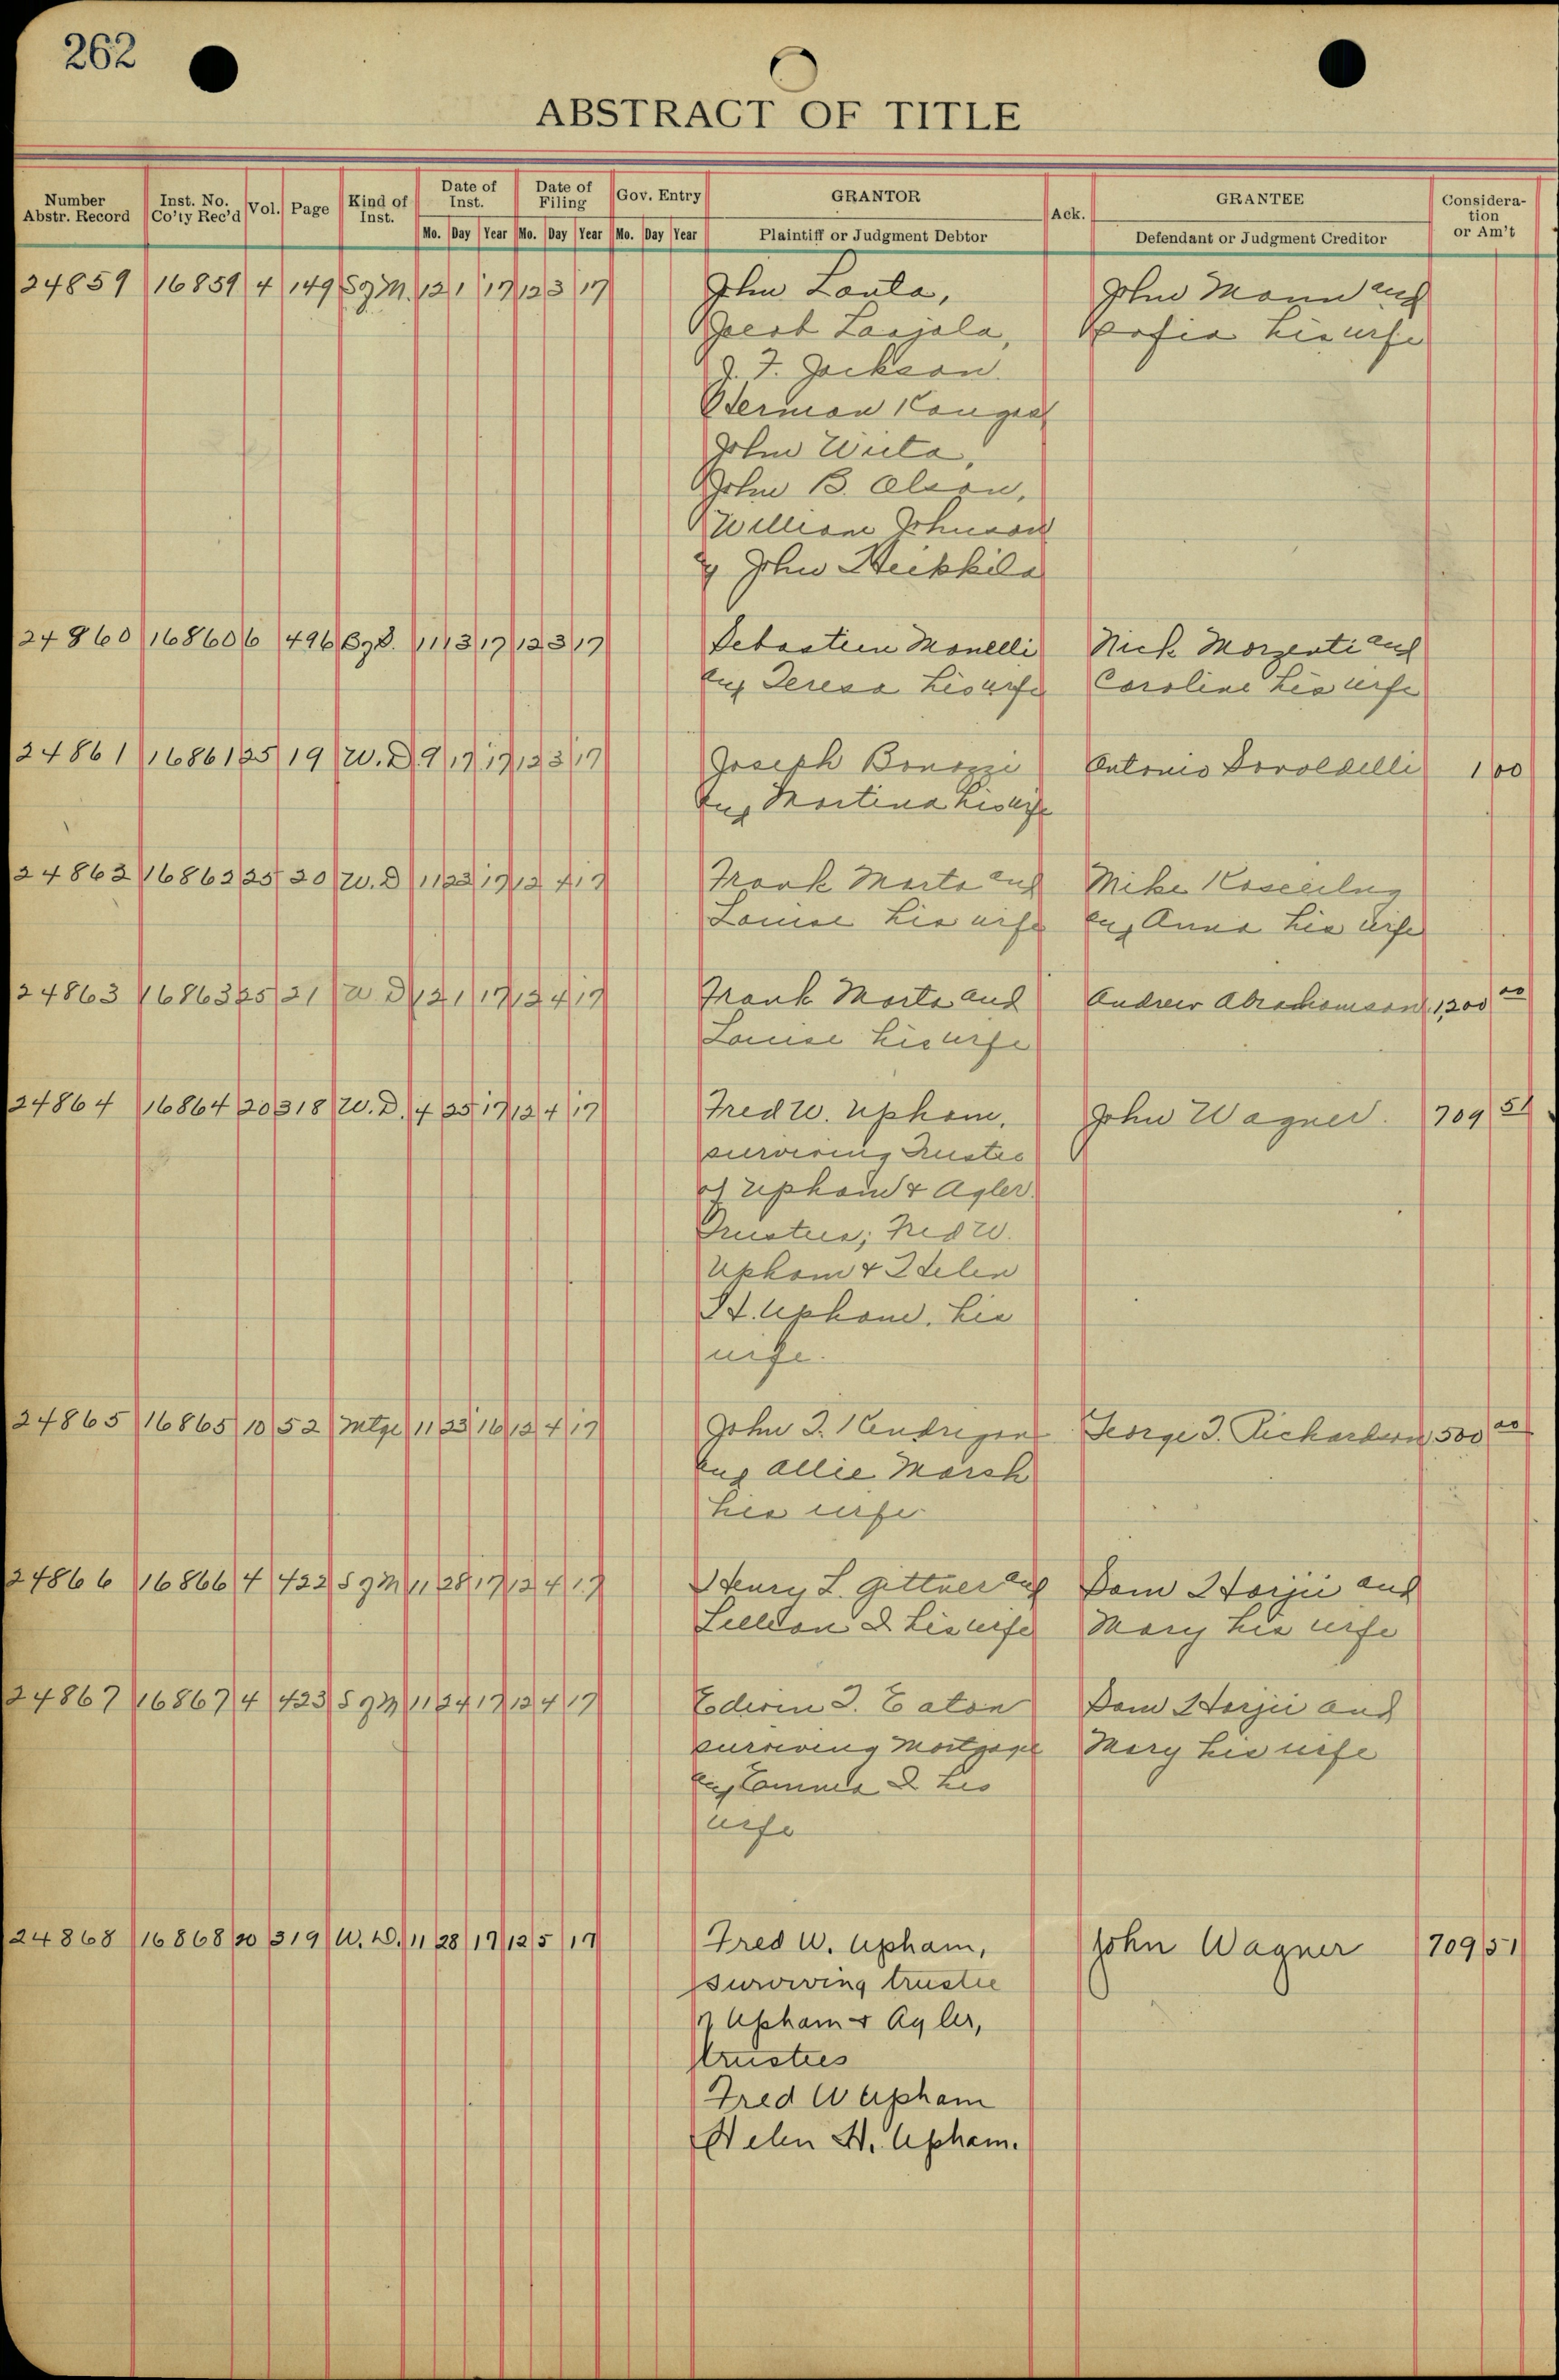 262
ABSTRACT OF TITLE
Number Abstr. Record | Inst. No. Co'ty Rec'd | Vol. | Page | Kind of Inst. | Date of Inst. | Date of Filing | Gov. Entry | GRANTOR | Ack. | GRANTEE | Consideration or Am't
Mo. Day Year Mo. Day Year Mo. Day Year Plaintiff or Judgment Debtor Defendant or Judgment Creditor
24859 16859 4 149 S 12 1 17 12 3 17 John Lanta, John Mann and
Laajala, Sofia his wife
J. F. Jackson
Herman Kangas
John Wiita,
John B. Olson,
William Johnson
& John Heikkila
24860 16860 6 496 11 13 17 12 3 17 Sebastien Monelli Nick Morzenti and
and Teresa his wife Caroline his wife
24861 16861 25 19 W. D. 9 17 17 12 3 17 Joseph Bonozzi Antonio 1 00
and Martina his wife
24862 16862 25 20 W. D. 11 22 17 12 4 17 Frank Marta and Mike
Louise his wife and Anna his wife
24863 16863 25 21 W D 12 1 17 12 4 17 Frank Marta and Andrew Abrahamson 1200 00
Louise his wife
24864 16864 20 318 W. D. 4 25 17 12 4 17 Fred W. Upham, John Wagner. 709 51
surviving Trustee
of Upham & Agler
Trustees; Fred W.
Upham & Helen
H. Upham, his
wife.
24865 16865 10 52 Mtge 11 23 16 12 4 17 John J. Kendrigan George J. Richardson 500 00
and Allie Marsh
his wife
24866 16866 4 422 S g M 11 28 17 12 4 17 Henry L. Gittner and Dom Horjii and
Lillian D his wife Mary his wife
24867 16867 4 423 S g M 11 24 17 12 4 17 Ederin J. Eaton Dom Horjii and
surviving Mortgage Mary his wife
and Emma D his
wife
24868 16868 20 319 W. D. 11 28 17 12 5 17 Fred W. Upham, John Wagner 709 51
surviving trustee
of Upham & Agler,
trustees
Fred W Upham
Helen H. Upham.